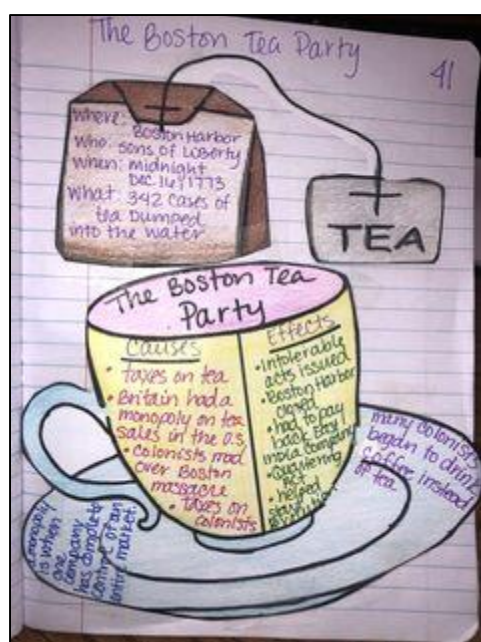 The Boston Tea Party
41
Where:
Boston Harbor
Who: Sons of Liberty
When: midnight
Dec. 16, 1773
What: 342 cases of
tea Dumped
into the water
TEA
The Boston Tea
Party
Causes
• taxes on tea
• Britain had a
monopoly on tea
sales in the U.S.
• colonists mad
over Boston
massacre
• Taxes on
colonists
Effects
• Intolerable
acts issued
• Boston Harbor
closed
• had to pay
back East
India Company
• Quartering
Act
• helped
start
many colonists
began to drink
coffee instead
of tea
a monopoly
is when
one
company
has complete
control of an
entire market.